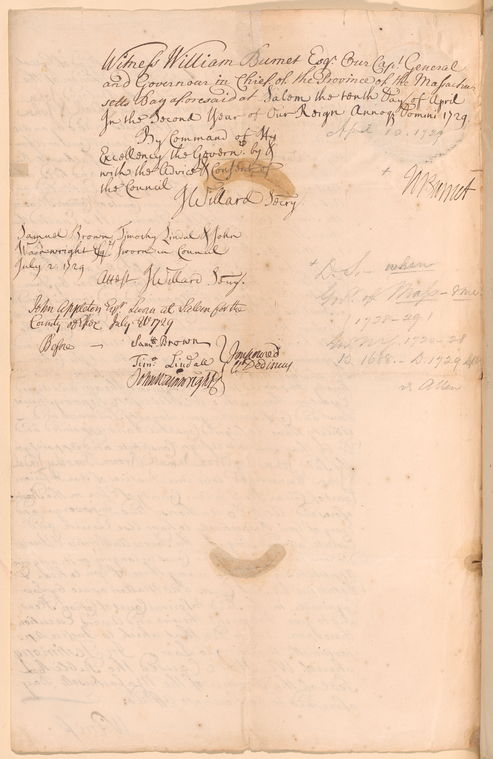 Witness William Burnet Esqr. Our Capt. General
and Governour in Chief of the Province of the Massachu-
setts Bay aforesaid at Salem the tenth Day of April
In the Second Year of Our Reign Annoq Domini 1729
April 10. 1729
By Command of His
Excellency the Governr. by &
with the Advice & Consent of
the Council
J Willard Secry
WBurnet
Samuel Brown, Timothy Lindal & John
Wainwright Esqrs. sworn in Council
July 2. 1729
Attest J Willard Secry.
John Appleton Esqr Sworn at Salem for the
County of Essex July 1729
Before — Saml. Brown
Timo. Lindall
John Wainwright
Impowred
Dedimus
D. S. — when
Gov. of Mass — &
1728-29
Gov. N.Y. 1720-28
b. 1688 - D. 1729
v. Allen